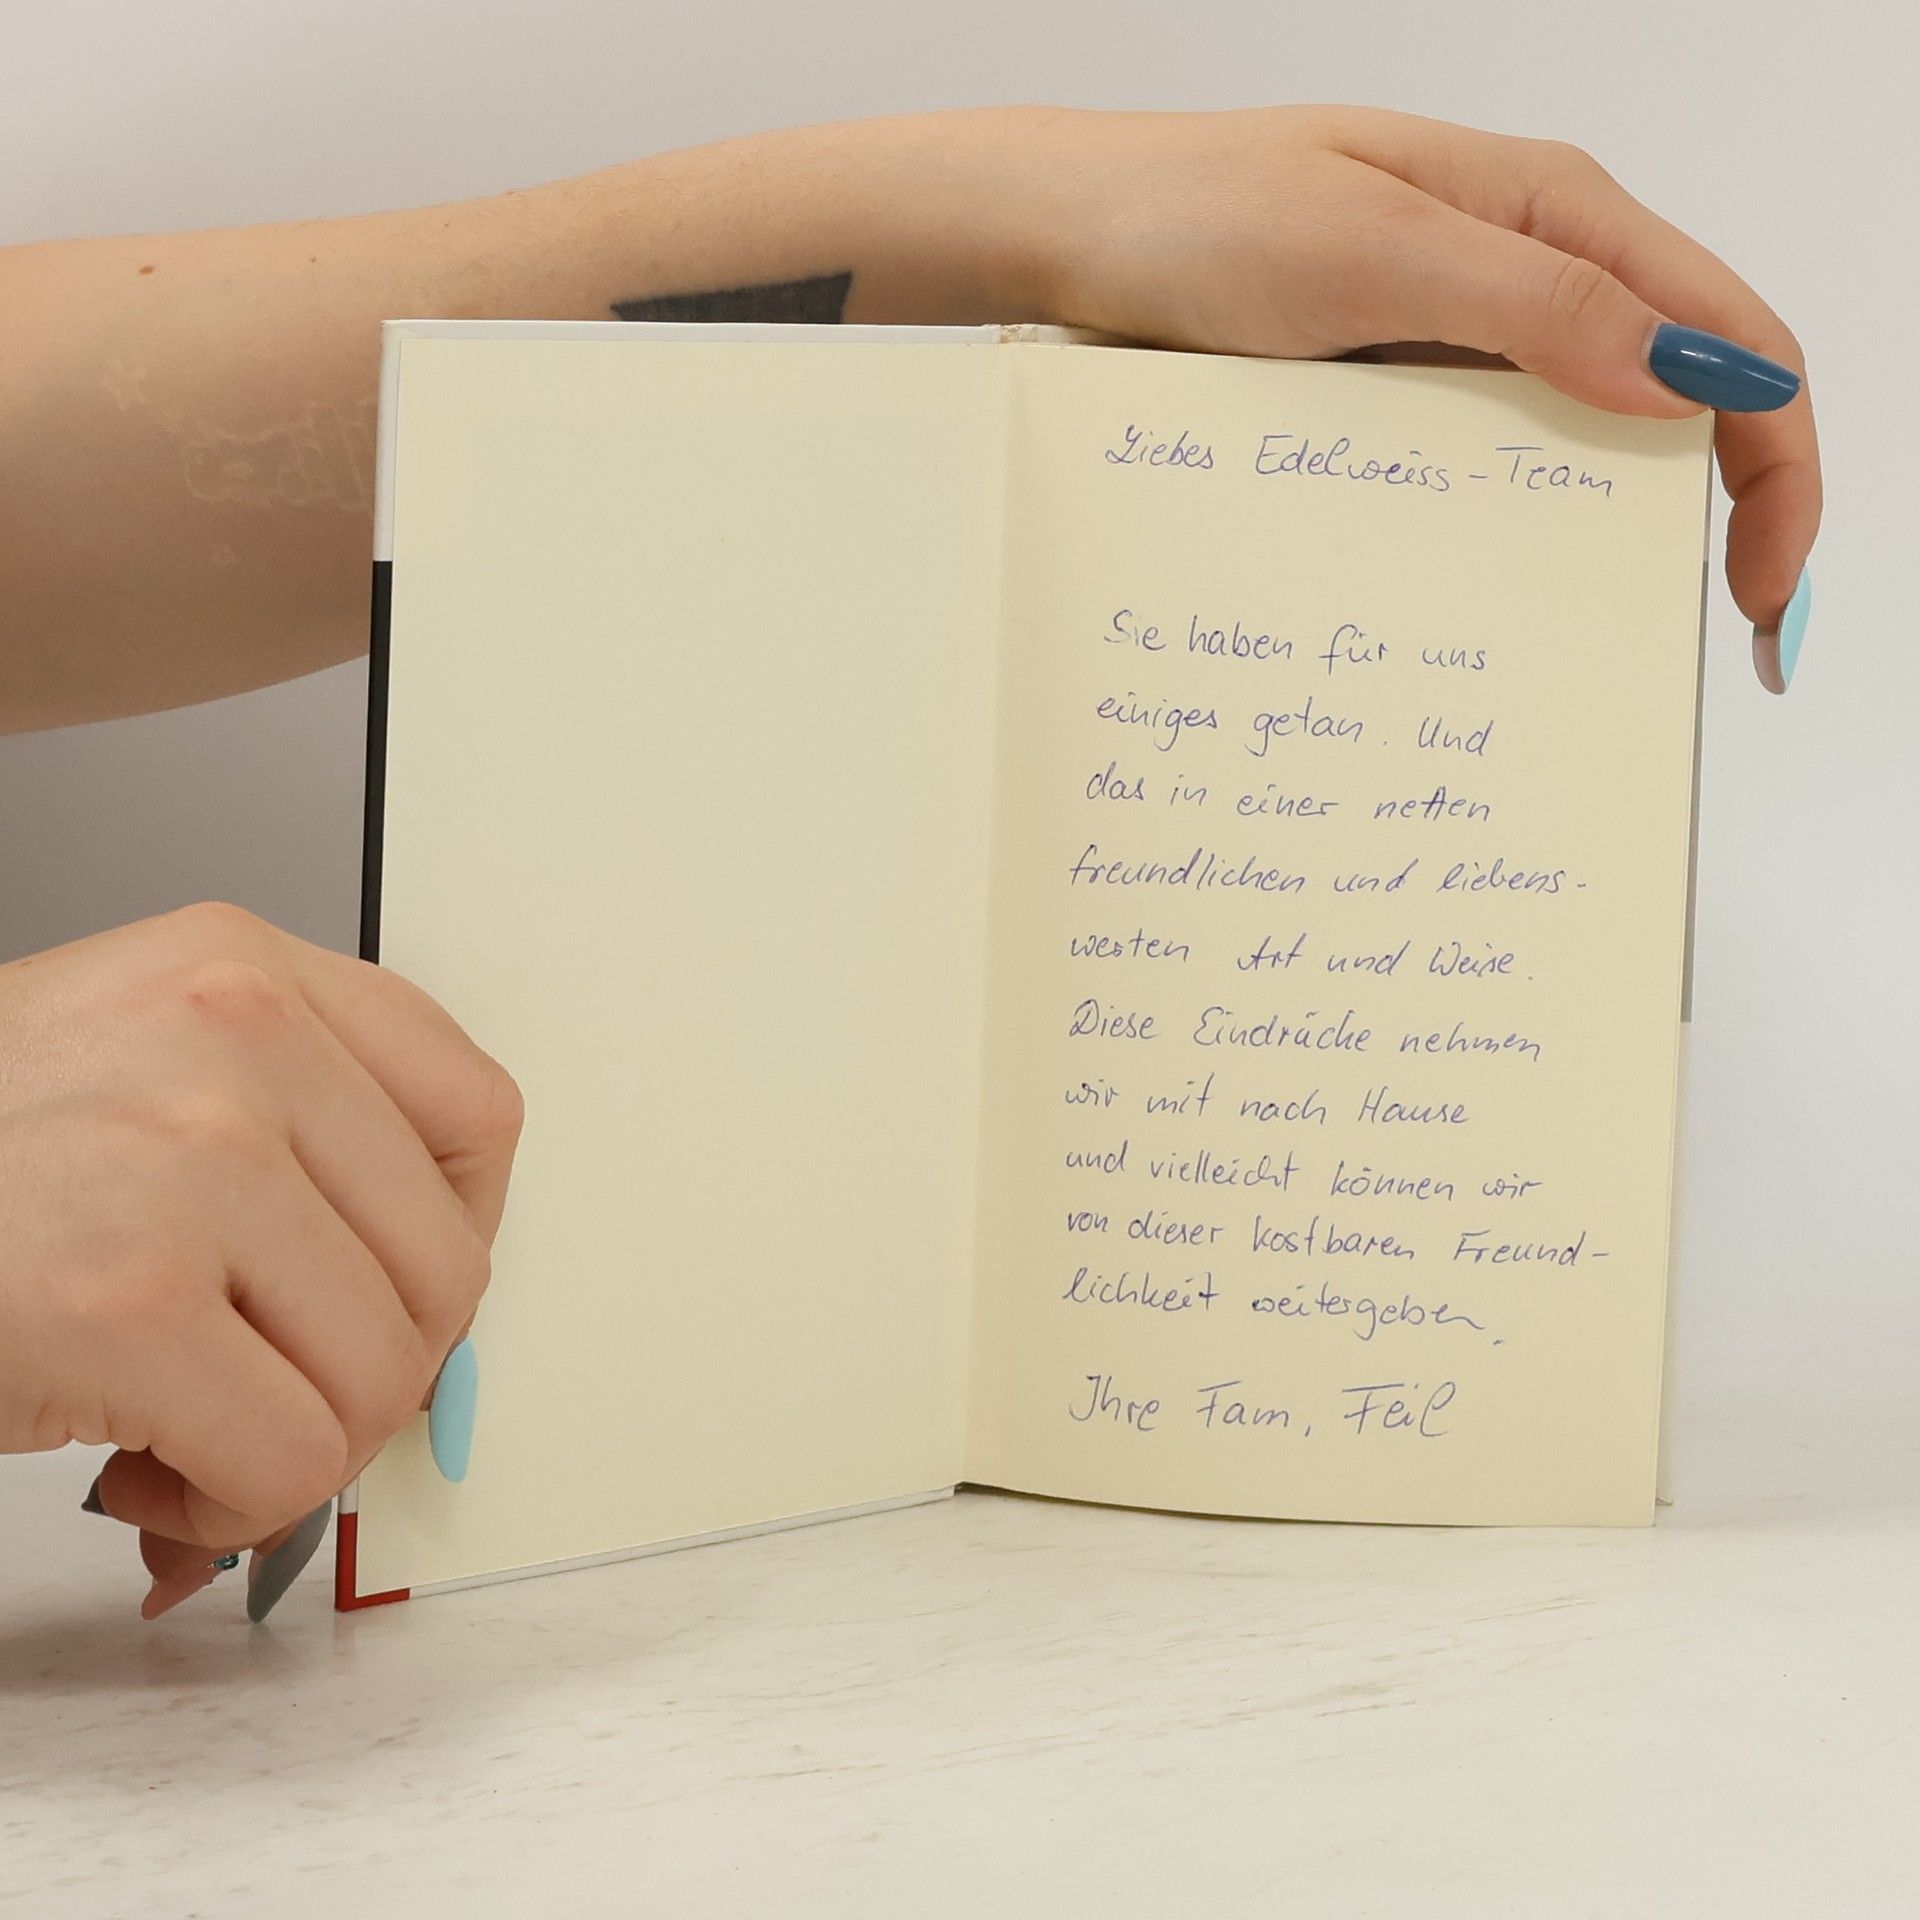 Liebes Edelweiss-Team
Sie haben für uns
einiges getan. Und
das in einer netten
freundlichen und liebens-
werten Art und Weise.
Diese Eindrücke nehmen
wir mit nach Hause
und vielleicht können wir
von dieser kostbaren Freund-
lichkeit weitergeben.
Ihre Fam. Feil